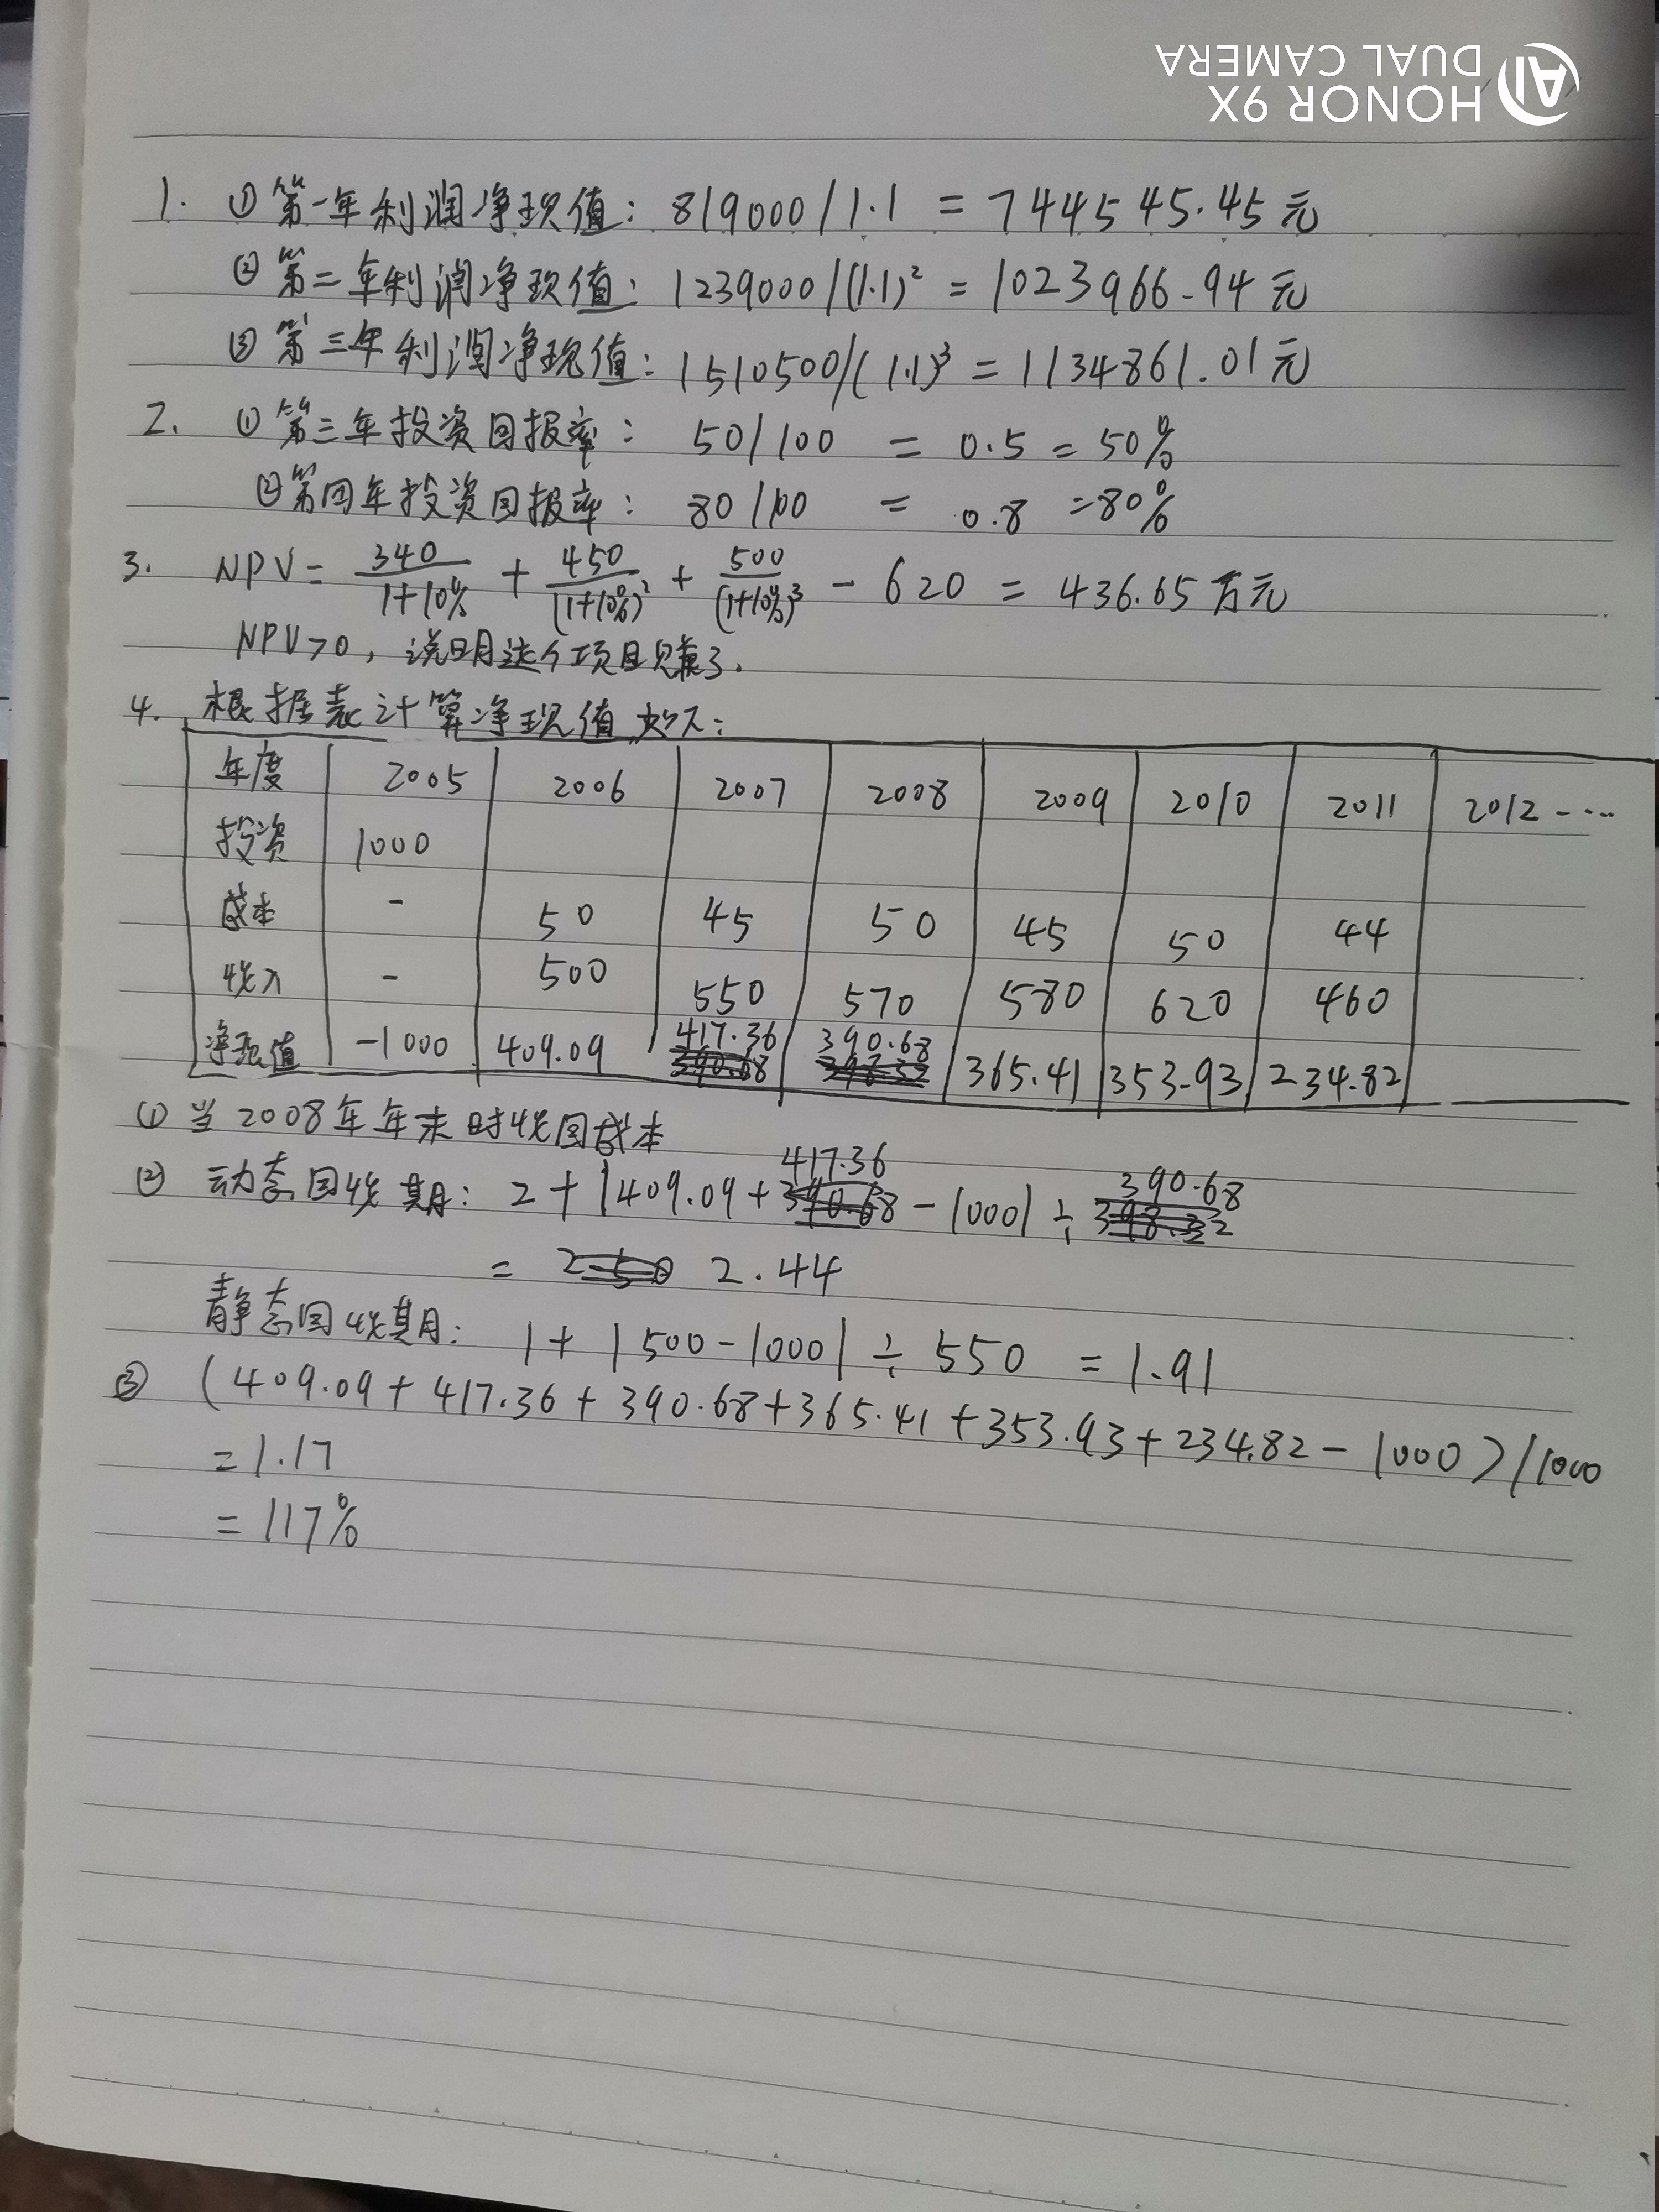 HONOR 9X
DUAL CAMERA
1. ① 第一年利润净现值: 819000/1.1 = 7445 45.45元
② 第二年利润净现值: 1239000/(1.1)² = 1023966.94元
③ 第三年利润净现值: 1510500/(1.1)³ = 1134861.01元
2. ① 第三年投资回报率: 50/100 = 0.5 = 50%
② 第四年投资回报率: 80/100 = 0.8 = 80%
3. NPV = 340/(1+10%) + 450/(1+10%)² + 500/(1+10%)³ - 620 = 436.65万元
NPV>0, 说明这个项目赚了.
4. 根据表计算净现值如下:
年度 2005 2006 2007 2008 2009 2010 2011 2012 ----
投资 1000
成本 - 50 45 50 45 50 44
收入 - 500 550 570 580 620 460
净现值 -1000 409.09 417.36 390.68 365.41 353.93 234.82
① 当2008年年末时收回成本
② 动态回收期: 2+|409.09+417.36-1000|÷390.68
= 2.44
静态回收期: 1+|500-1000|÷550 = 1.91
③ (409.09+417.36+390.68+365.41+353.93+234.82-1000)/1000
= 1.17
= 117%